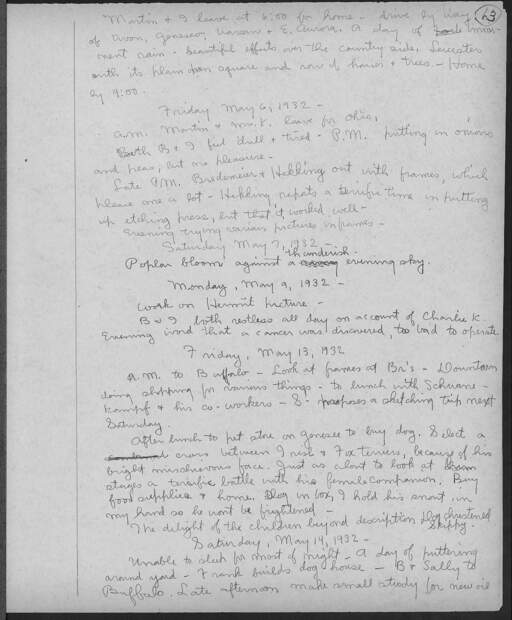 63
Martin & I leave at 6:00 for home - drive by way
of Avon, Geneseo, Warsaw & E. Aurora. A day of immi-
nent rain. Beautiful effects over the country side. Leicester
with its plain square and row of houses & trees. - Home
by 9:00.
Friday May 6, 1932 -
A.M. Martin & Mr. K. leave for Ohio.
Both B & I feel dull & tired - P.M. putting in onions
and peas, but no pleasure.
Late P.M. Bredemeier & Hekking out with frames, which
please one a lot - Hekking reports a terrific time in putting
up etching press, but that it worked well -
Evening trying various pictures in frames -
Saturday May 7, 1932 -
Poplar bloom against a thunderish evening sky.
Monday, May 9, 1932 -
Work on Hermit picture -
B & I both restless all day on account of Charlie K.
Evening word that a cancer was discovered, too bad to operate
Friday, May 13, 1932
A.M. to Buffalo - Look at frames at Br's - Downtown
doing shopping for various things - to lunch with Schwane-
kampf & his co-workers - S. proposes a sketching trip next
Saturday.
After lunch to pet store on Genesee to buy dog. Select a
cross between Irish & Fox terriers, because of his
bright mischievous face. Just as about to look at him
stages a terrific battle with his female companion. Buy
food supplies & home. Dog in box, I hold his snout in
my hand so he won't be frightened -
The delight of the children beyond description Dog christened
Skippy.
Saturday, May 14, 1932 -
Unable to sleep for most of night - A day of puttering
around yard - Frank builds dog house - B & Sally to
Buffalo. Late afternoon make small study for new oil